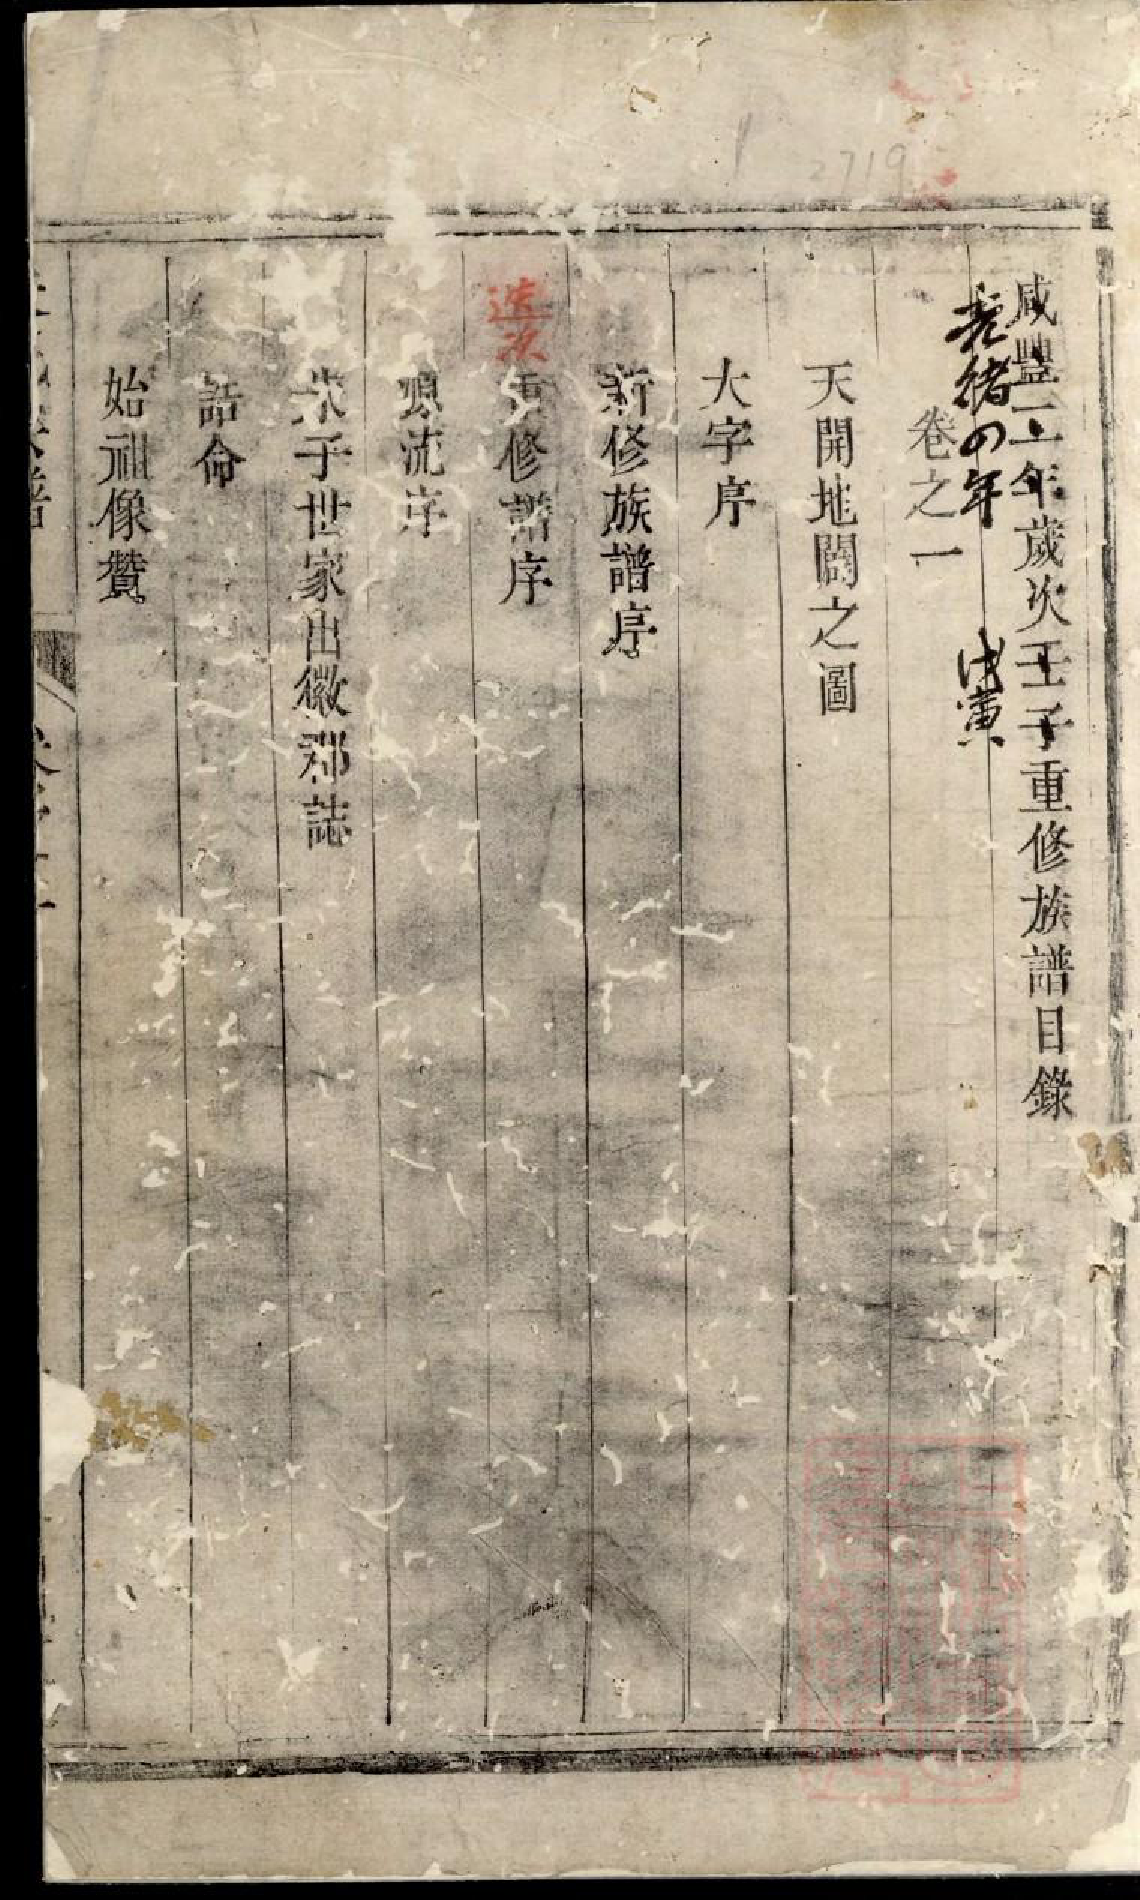 咸豐二年歲次壬子重修族譜目錄
光緒の年 戊寅
卷之一
天開地闢之圖
大字序
新修族譜序
迭次
重修譜序
源流序
朱子世家出徽郡誌
誥命
始祖像贊
2719